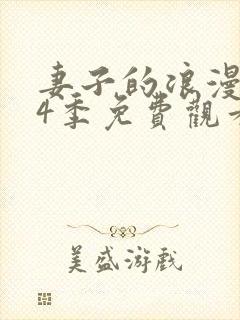 妻子的浪漫
4季免費觀看
美盛游戲